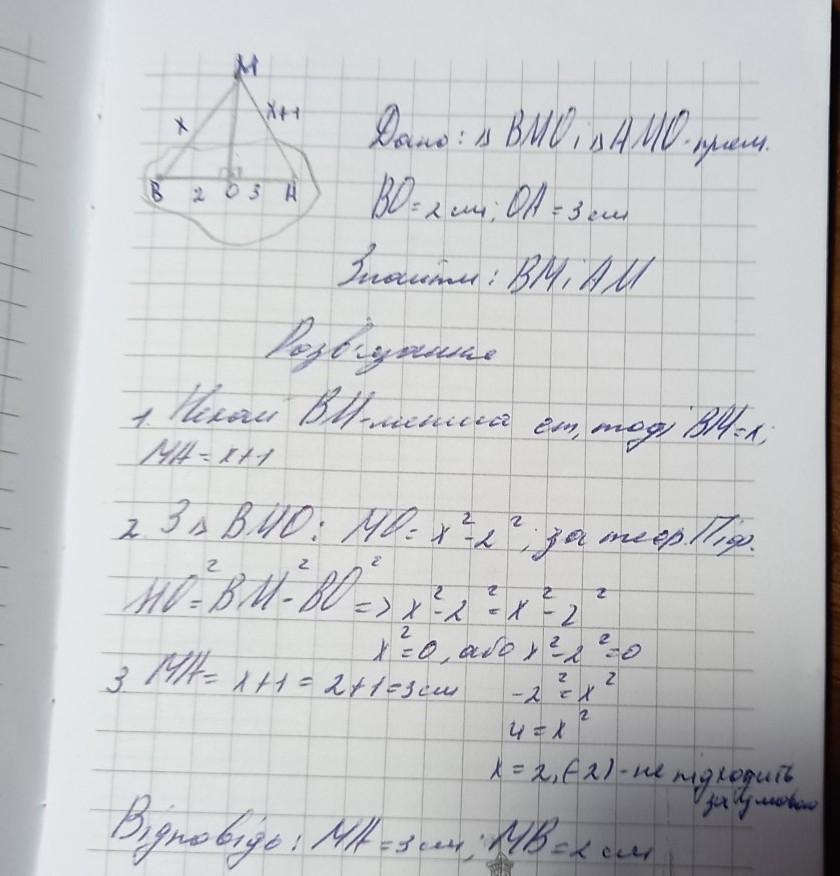 M
x x+1
B 2 O 3 A
Дано: △ BMO і △ AMO - прям.
BO = 2 см; OA = 3 см
Знайти: BM і AM
Розв'язання
1. Нехай BM - менша ст, тоді BM = x;
MA = x+1
2. З △ BMO: MO = x² - 2²; за теор. Піф.
MO² = BM² - BO² => x² - 2² = x² - 2²
x² = 0, або x² - 2² = 0
3 MA = x+1 = 2+1 = 3 см
-2² = x²
4 = x²
x = 2, (-2) - не підходить
за умовою
Відповідь: MA = 3 см; MB = 2 см